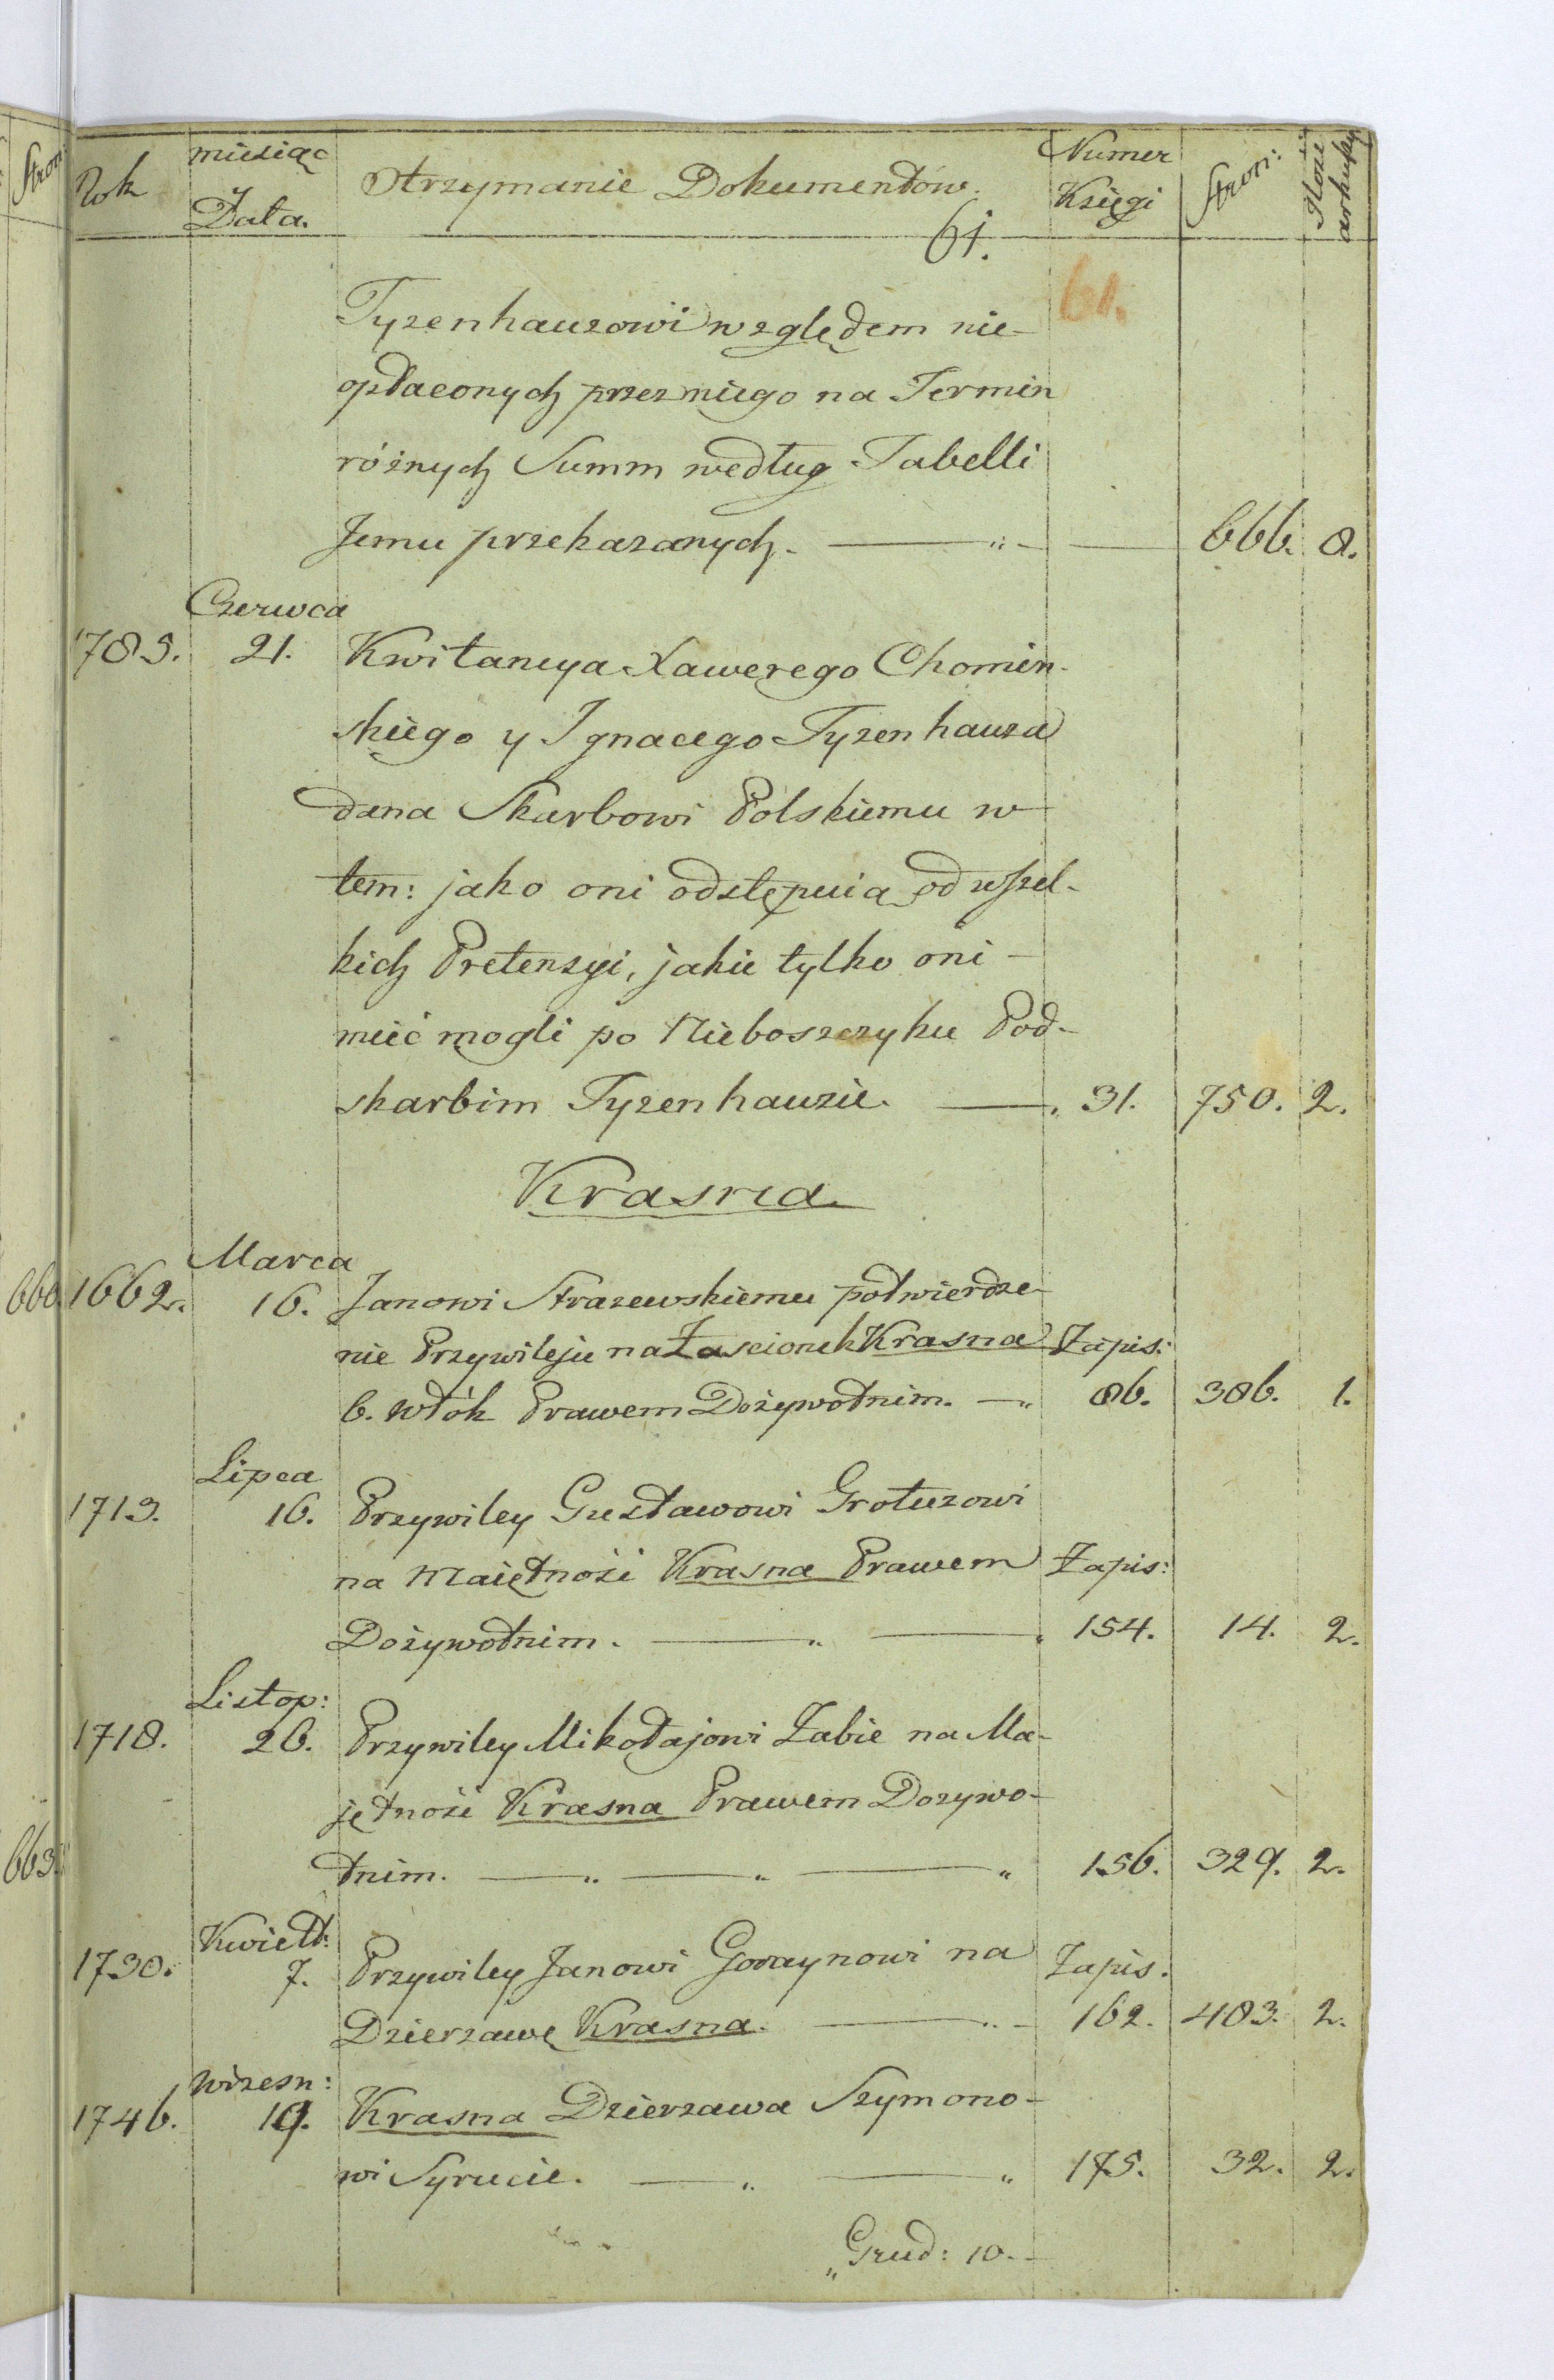 Rok miesiąc Data. Otrzymanie Dokumentów. Numer Księgi Stron: Ilość arkuszy
61.
61.
Tyzenhauzowi względem nie-
opłaconych przez niego na Termin
różnych Summ według Tabelli
Jemu przekazanych. 666. 8.
Czerwca
1785. 21. Kwitancya Xawerego Chomin-
skiego y Ignacego Tyzenhauza
dana Skarbowi Polskiemu w
tem: jako oni odstępuią od wszel-
kich Pretensyi, jakie tylko oni -
mieć mogli po Nieboszczyku Pod-
skarbim Tyzenhauzie. 31. 750. 2.
Krasna.
Marca
1662. 16. Janowi Strazewskiemu potwierdze-
nie Przywileju na Zascionek Krasna Zapis:
6. włók Prawem Dożywotnim. 86. 386. 1.
Lipca
1713. 16. Przywiley Gustawowi Grotuzowi
na Maiętność Krasna Prawem Zapis:
Dożywotnim. 154. 14. 2.
Listop:
1718. 26. Przywiley Mikołajowi Zabie na Ma-
jętność Krasna Prawem Dozywo-
tnim. 156. 329. 2.
Kwiet:
1730. 7. Przywiley Janowi Goraynowi na Zapis.
Dzierzawę Krasna. 162. 483. 2.
Wrzesn:
1746. 19. Krasna Dzierzawa Szymono-
wi Syrucie. 175. 32. 2.
Grud: 10.
660.
663.
Stron